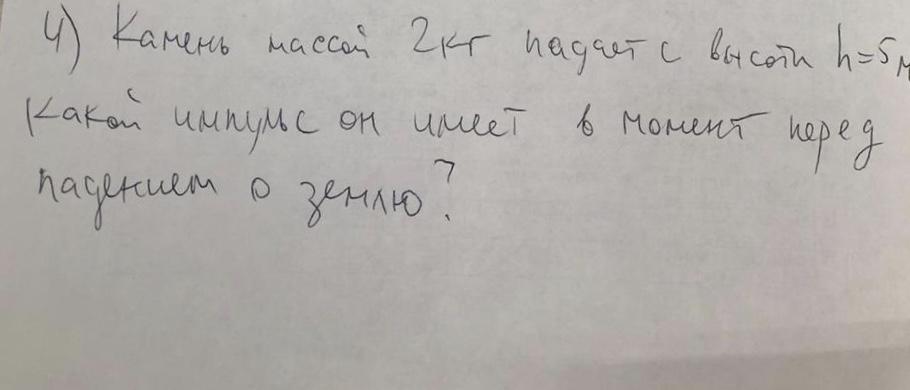 4) Камень массой 2кг падает с высоты h=5м
Какой импульс он имеет в момент перед
падением о землю?